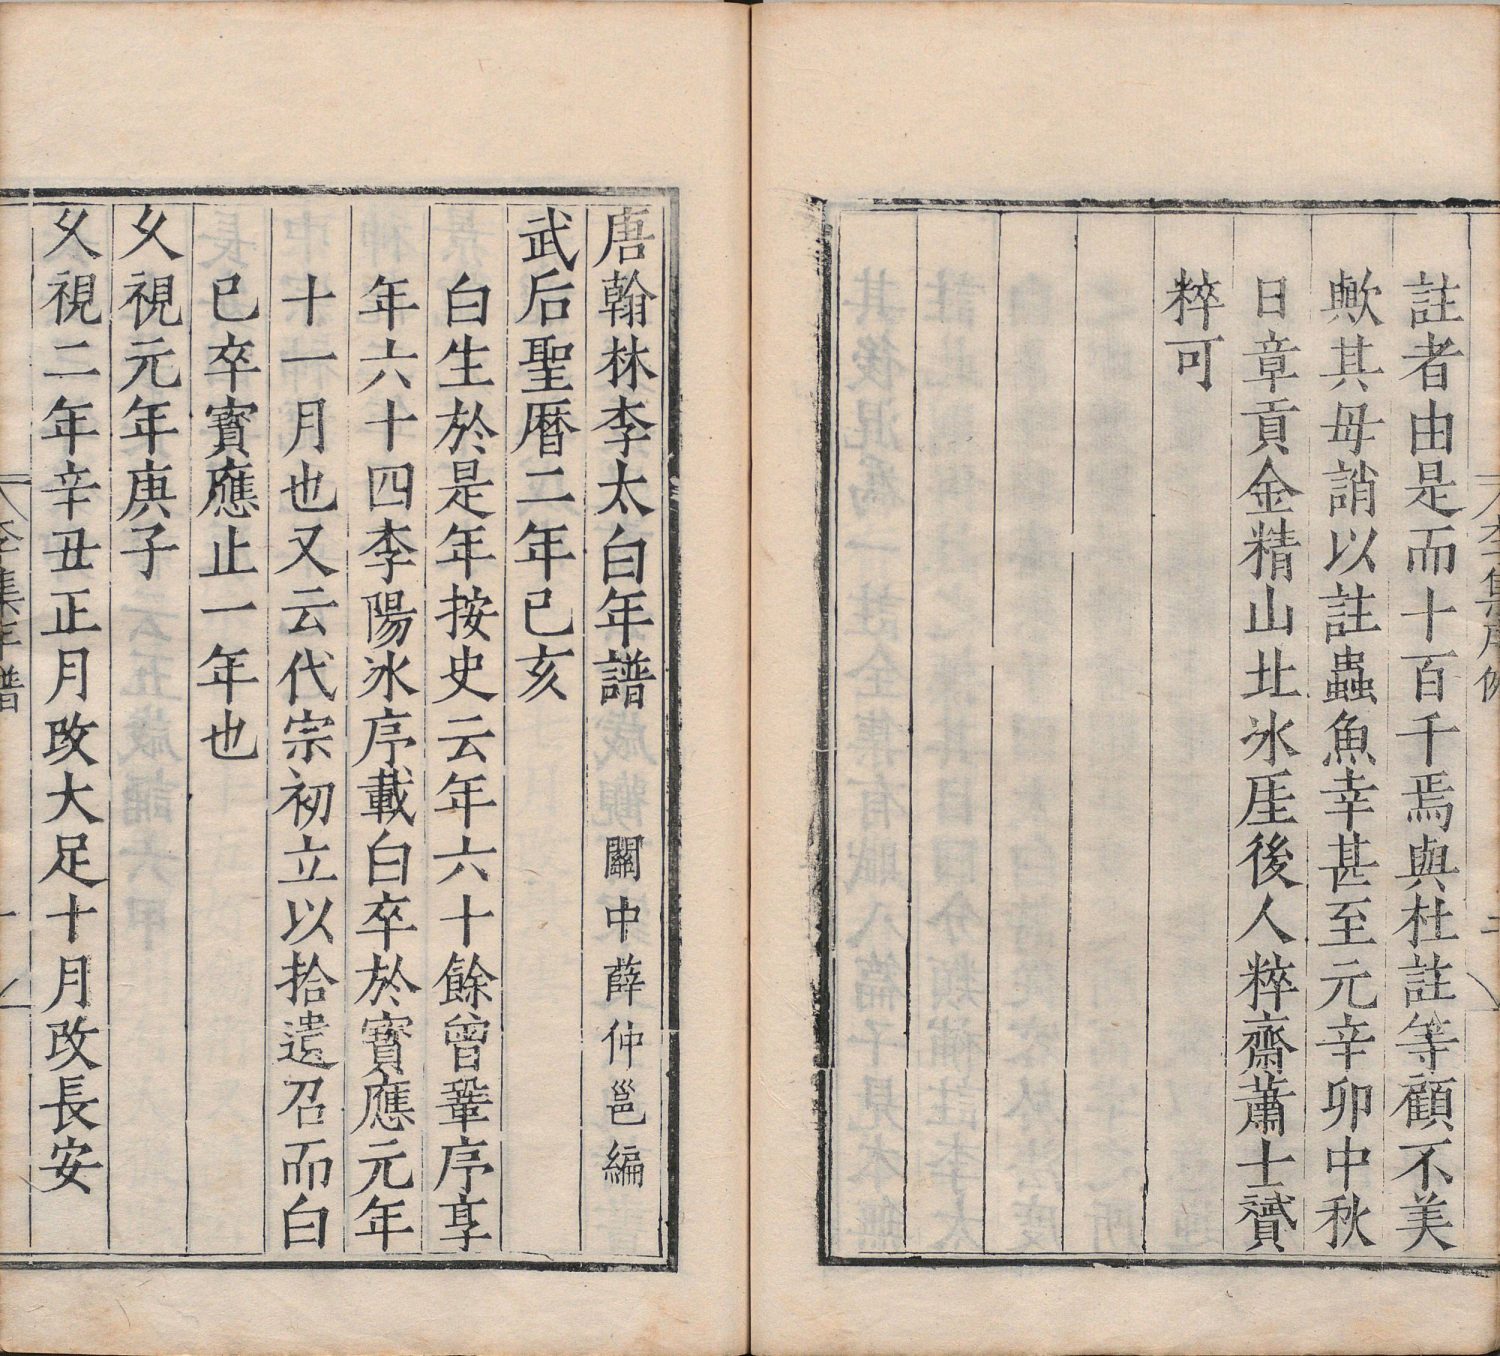 註者由是而十百千焉與杜註等顧不美
歟其毋誚以註蟲魚幸甚至元辛卯中秋
日章貢金精山北氷厓後人粹齋蕭士贇
粹可
唐翰林李太白年譜 關中薛仲邕編
武后聖曆二年己亥
白生於是年按史云年六十餘曾鞏序享
年六十四李陽氷序載白卒於寳應元年
十一月也又云代宗初立以拾遺召而白
已卒寳應止一年也
久視元年庚子
久視二年辛丑正月改大足十月改長安